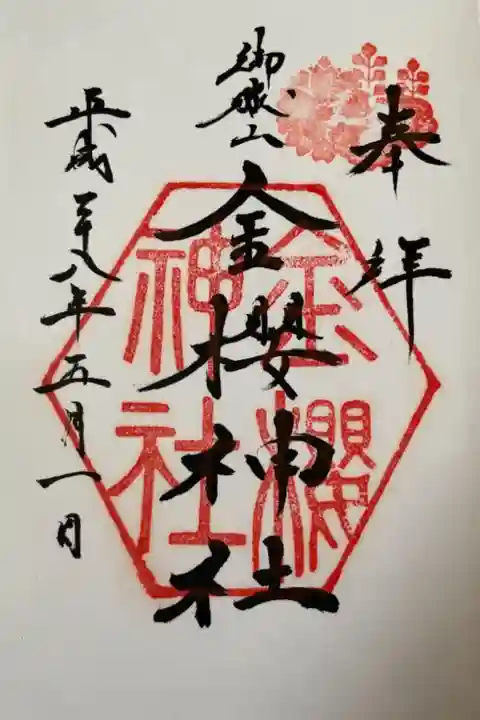 奉拝
御嶽山
金櫻神社
平成二十八年五月一日
金櫻
神社